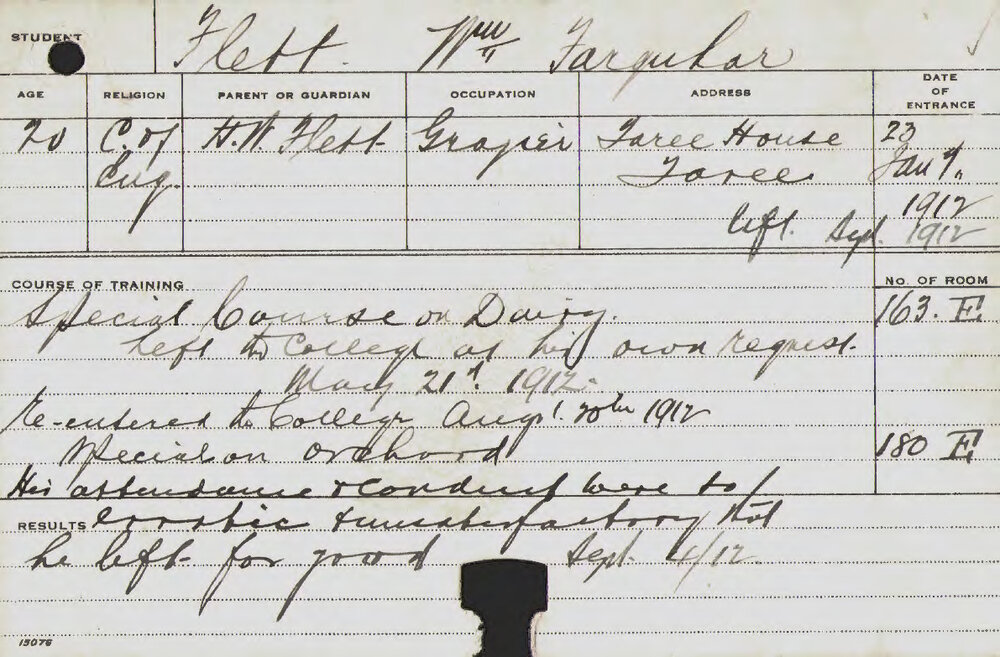 STUDENT Flett Wm Farquhar
AGE RELIGION PARENT OR GUARDIAN OCCUPATION ADDRESS DATE OF ENTRANCE
20 C. of H. W. Flett Grazier Taree House 23
Eng. Taree Jany
1912
left Sept. 1912
COURSE OF TRAINING NO. OF ROOM
Special Course on Dairy. 163. E.
Left the College at his own request
May 21st. 1912.
Re-entered the College Augt. 20th 1912
Special on Orchard 180 E
His attendance & conduct were so
RESULTS erratic & unsatisfactory that
he left for good Sept 4/12.
15076